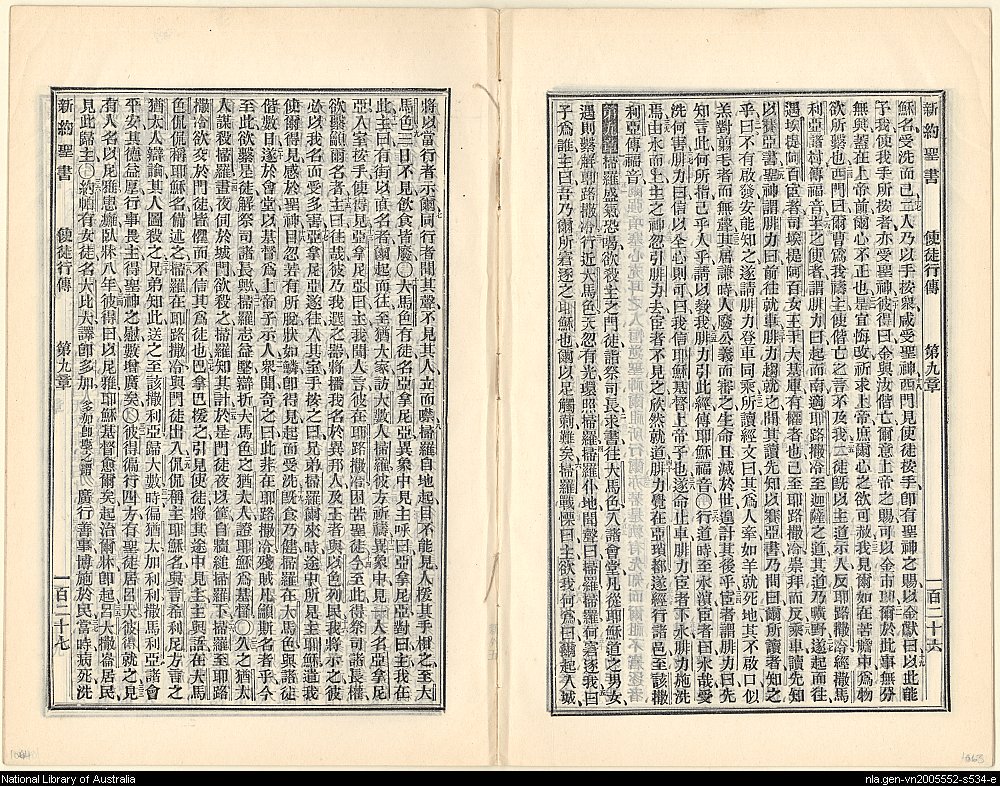 新約聖書 使徒行傳 第九章 一百二十六
穌名受洗而已二人乃以手按衆咸受聖神西門見使徒按手卽有聖神之賜以金獻曰以此能
予我使我手所按者亦受聖神彼得曰金與汝偕亡爾意上帝之賜可以金市則爾於此事無分
無與蓋在上帝前爾心不正也是宜悔改祈求上帝庶爾心之欲可赦我見爾如在苦膽中爲物
欲所縶也西門曰爾曹爲我禱主使偕亡之言不及我二徒旣以主道示人反耶路撒冷經撒馬
利亞諸村傳福音主之使者謂腓力曰起而南適耶路撒冷至迦薩之道其道乃曠野遂起而往
遇埃提阿百宦者司埃提阿百女王干大基庫有權者也已至耶路撒冷崇拜而反乘車讀先知
以賽亞書聖神謂腓力曰前往就車腓力趨就之聞其讀先知以賽亞書乃問曰爾所讀者知之
乎曰不有啟發安能知之遂請腓力登車同乘所讀經文曰其爲人牽如羊就死地其不啟口似
羔對剪毛者而無聲其居謙時人廢公義而審之生命且滅於世遑計其後乎宦者謂腓力曰先
知言此何所指己乎人乎請以敎我腓力引此經傳耶穌福音行道時至水濱宦者曰水哉受
洗何害腓力曰信以全心則可曰我信耶穌基督上帝子也遂命止車腓力宦者下水腓力施洗
焉由水而上主之神忽引腓力去宦者不見之欣然就道腓力覺在亞瑣都遂經行諸邑至該撒
利亞傳福音
第九章掃羅盛氣恐喝欲殺主之門徒詣祭司長求書往大馬色入諸會堂凡從耶穌道之男女
遇則繫解耶路撒冷行近大馬色天忽有光環照掃羅掃羅仆地聞聲曰掃羅掃羅何窘逐我曰
子爲誰主曰吾乃爾所窘逐之耶穌也爾以足觸荊難矣掃羅戰慄曰主欲我何爲曰爾起入城
將以當行者示爾同行者聞其聲不見其人立而喑掃羅自地起目不能見人援其手相之至大
馬色三日不見飲食皆廢大馬色有徒名亞拿尼亞異象中見主呼曰亞拿尼亞對曰主我在
此主曰有街以直名者爾起而往至猶大家訪大數人掃羅彼方祈禱異象中見一人名亞拿尼
亞入室按手使得見亞拿尼亞曰主我聞人言彼在耶路撒冷困苦聖徒今至此得祭司諸長權
欲繫籲爾名者主曰往哉彼乃我選之器將播我名於異邦人及王者與以色列民我將示之彼
必以我名而受多害亞拿尼亞遂往入其室手按之曰兄弟掃羅爾來時途中所見主耶穌遣我
使爾得見感於聖神目忽若有所脫狀如鱗卽得見起而受洗旣食乃健掃羅在大馬色與諸徒
偕數日遂於會堂以基督爲上帝子示人衆聞奇之曰此非在耶路撒冷殘賊凡籲斯名者乎今
至此欲繫是徒解祭司諸長歟掃羅志益堅辯折大馬色之猶太人證耶穌爲基督久之猶太
人謀殺掃羅晝夜伺於城門欲殺之掃羅知其計於是門徒夜以筐自牆縋掃羅下掃羅至耶路
撒冷欲交於門徒皆懼而不信其爲徒也巴拿巴援之引見使徒將其途中見主主與語在大馬
色侃侃稱耶穌名備述之掃羅在耶路撒冷與門徒出入侃侃稱主耶穌名與言希利尼方言之
猶太人辯論其人圖殺之兄弟知此送之至該撒利亞歸大數時徧猶太加利利撒馬利亞諸會
平安其德益厚行事畏主得聖神之慰數增廣矣彼得徧行四方有聖徒居呂大彼得就之見
有人名以尼雅患癱臥牀八年彼得曰以尼雅耶穌基督愈爾矣起治爾牀卽起呂大撒崙居民
見此歸主約帕有女徒名大比大譯卽多加多加卽麀之謂廣行善事博施於民當時病死洗
新約聖書 使徒行傳 第九章 一百二十七
1064
1063
National Library of Australia
nla.gen-vn2005552-s534-e